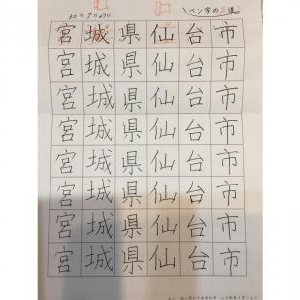 ペン字の
宮城県仙台市
宮城県仙台市
宮城県仙台市
宮城県仙台市
宮城県仙台市
宮城県仙台市
宮城県仙台市
宮城県仙台市